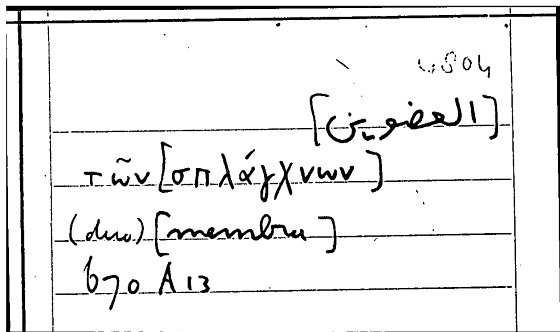 [العضوين]
τῶν [σπλάγχνων]
(duo) [membra]
670 A 13